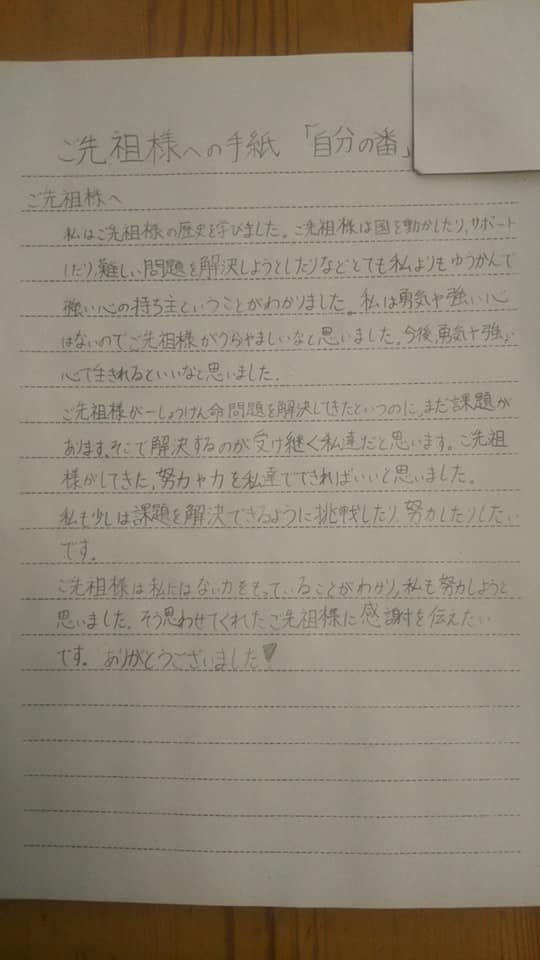 ご先祖様への手紙 「自分の番」
ご先祖様へ
私はご先祖様の歴史を学びました。ご先祖様は国を動かしたり、サポート
したり、難しい問題を解決しようとしたりなどとても私よりもゆうかんで
強い心の持ち主ということがわかりました。私は勇気や強い心
はないのでご先祖様がうらやましいなと思いました。今後、勇気や強い
心で生きれるといいなと思いました。
ご先祖様が一しょうけん命問題を解決してきたというのに、まだ課題が
あります。そこで解決するのが受け継ぐ私達だと思います。ご先祖
様がしてきた、努力や力を私達でできればいいと思いました。
私も少しは課題を解決できるように挑戦したり、努力したりしたい
です。
ご先祖様は私にはない力をもっていることがわかり、私も努力しようと
思いました。そう思わせてくれたご先祖様に感謝を伝えたい
です。ありがとうございました♥